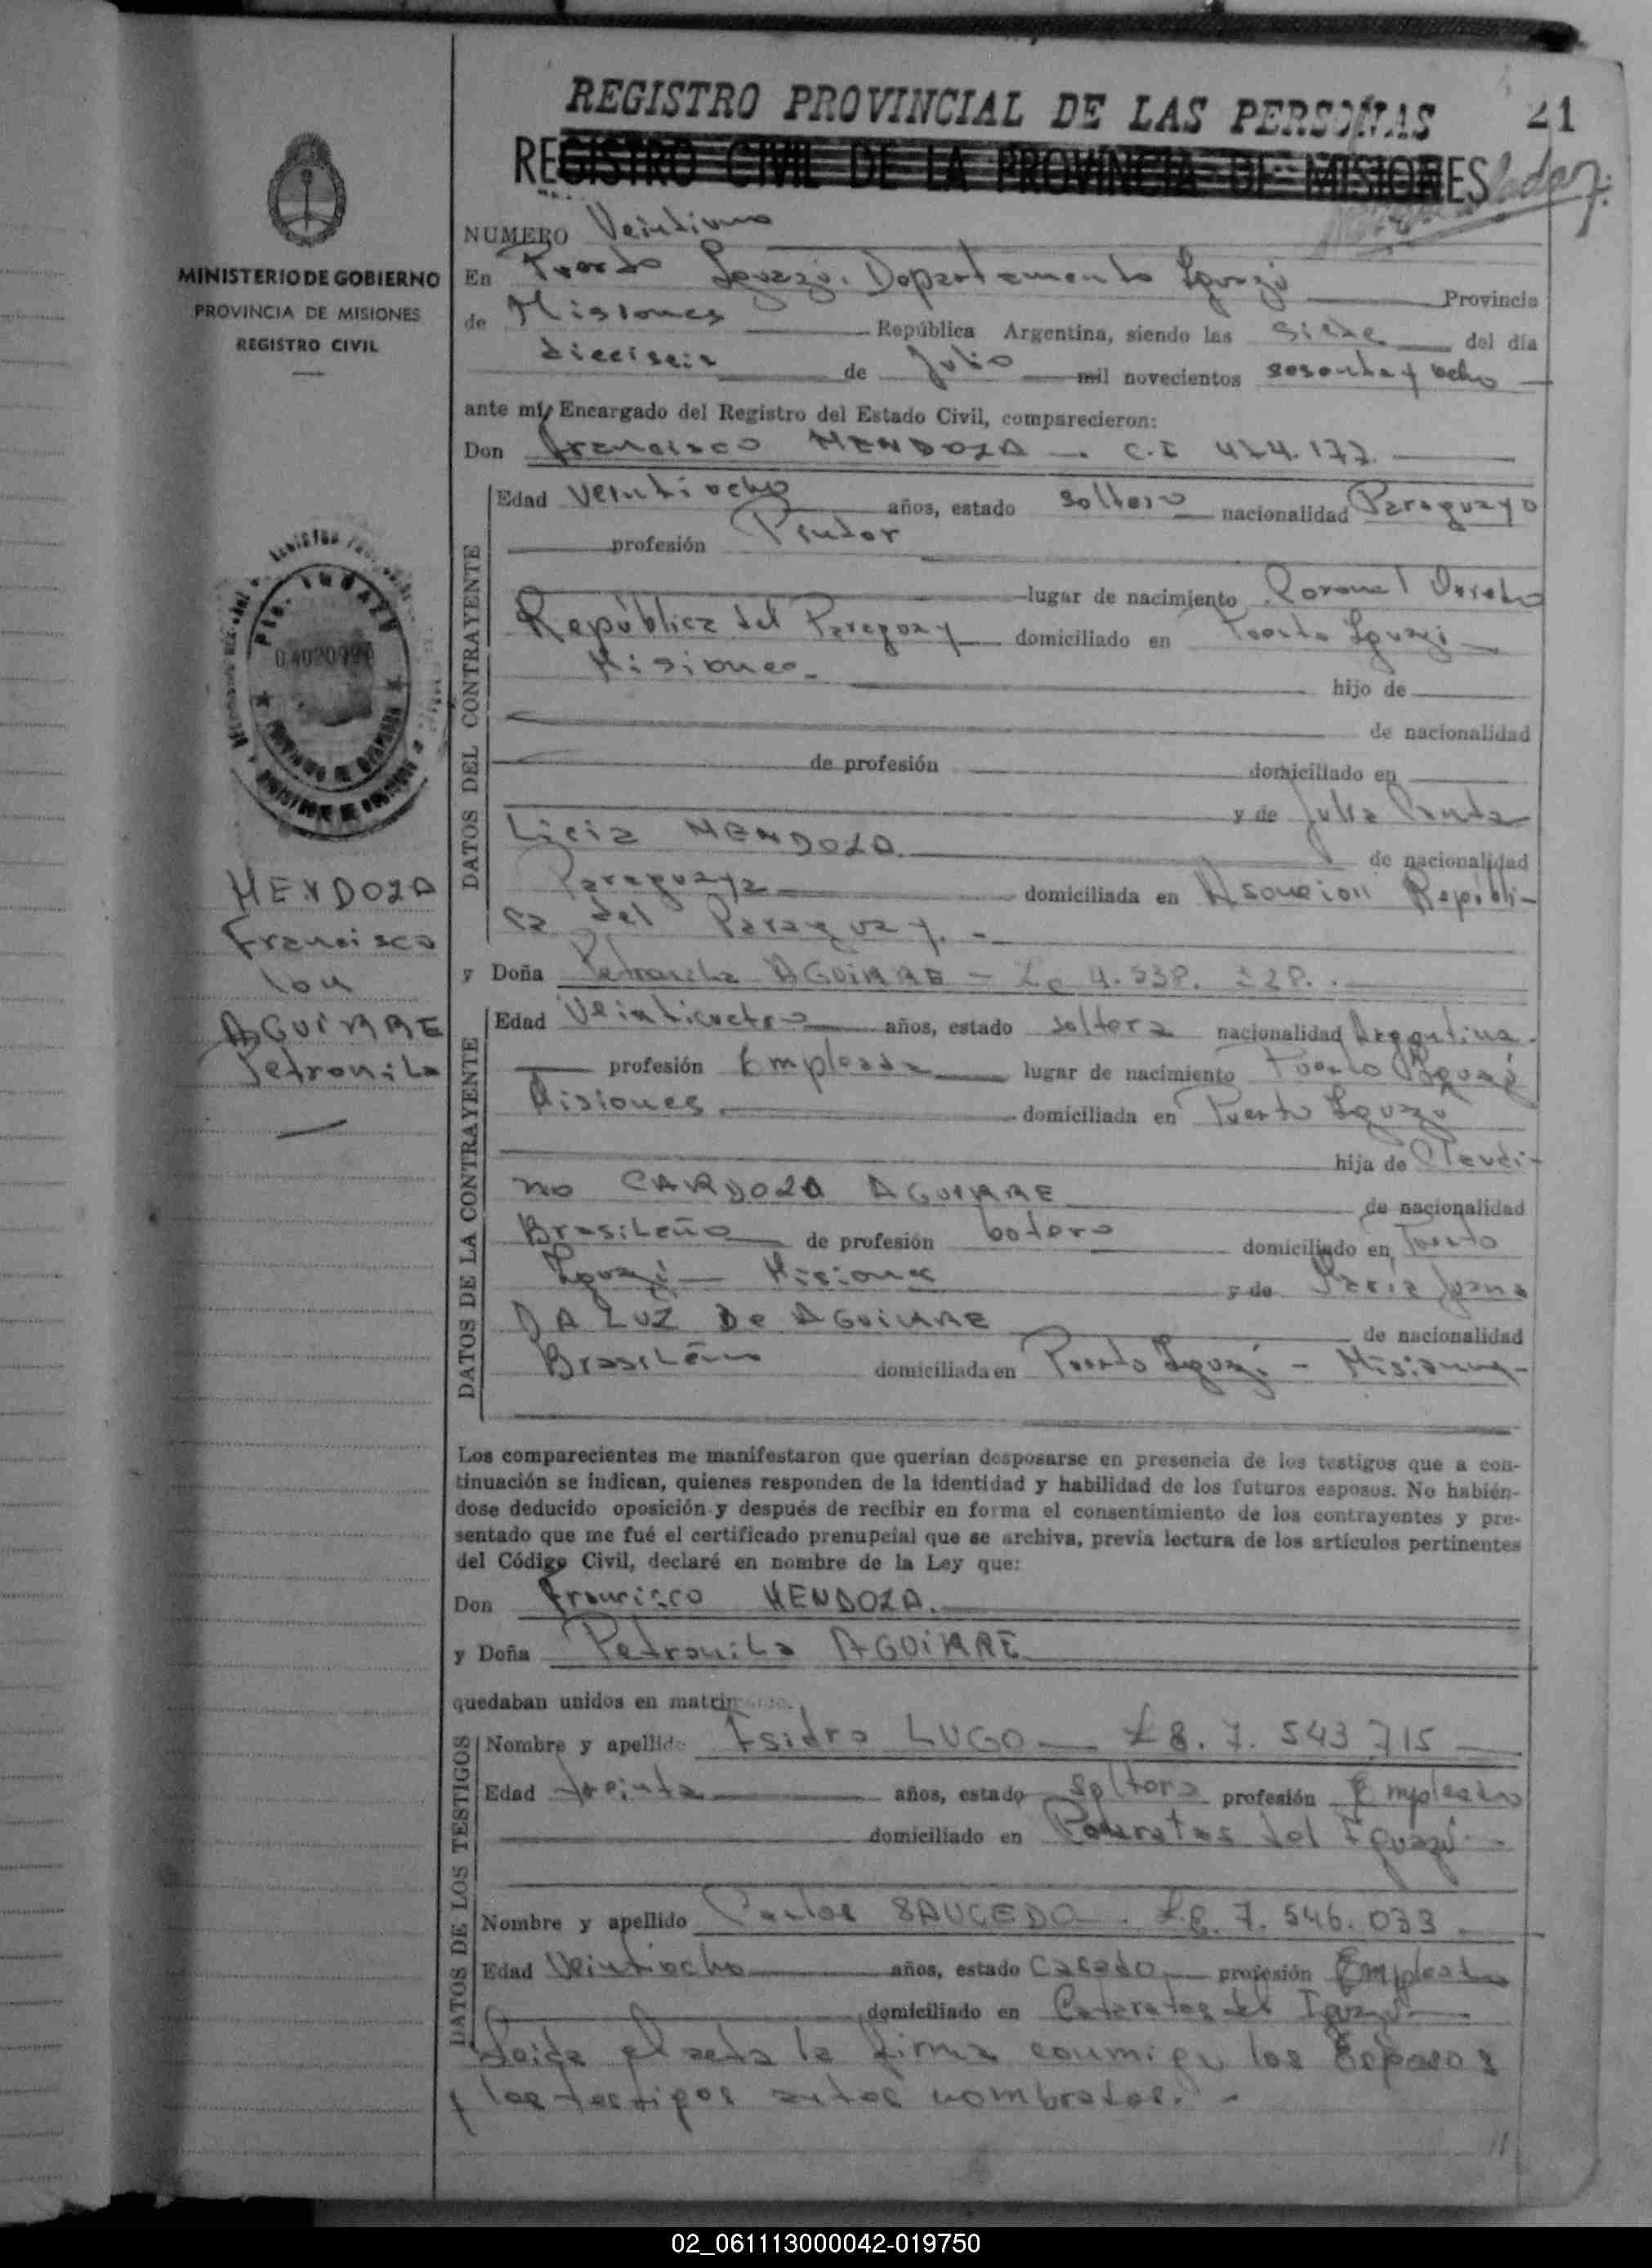 REGISTRO PROVINCIAL DE LAS PERSONAS 21
REGISTRO CIVIL DE LA PROVINCIA DE MISIONES
MINISTERIO DE GOBIERNO
PROVINCIA DE MISIONES
REGISTRO CIVIL
MENDOZA
Francisco
con
AGUIRRE
Petronila
NUMERO Veintiuno
En Puerto Iguazú. Departamento Iguazú Provincia
de Misiones República Argentina, siendo las siete del día
dieciseis de Julio mil novecientos sesenta y ocho
ante mí, Encargado del Registro del Estado Civil, comparecieron:
Don Francisco MENDOZA - C.I 414.177.
DATOS DEL CONTRAYENTE
Edad Veintiocho años, estado soltero nacionalidad Paraguayo
profesión Pintor
lugar de nacimiento Coronel Oviedo
República del Paraguay domiciliado en Puerto Iguazú
Misiones. hijo de
de nacionalidad
de profesión domiciliado en
y de Julia
Licia MENDOZA. de nacionalidad
Paraguaya domiciliada en Asuncion Repúbli-
ca del Paraguay. -
y Doña Petronila AGUIRRE - Lc 4.
DATOS DE LA CONTRAYENTE
Edad Veinticuatro años, estado soltera nacionalidad Argentina.
profesión Empleada lugar de nacimiento Puerto Iguazú
Misiones. domiciliada en Puerto Iguazú
hija de Claudi-
no CARDOZO AGUIRRE de nacionalidad
Brasileño de profesión botero domiciliado en Puerto
Iguazú - Misiones y de Maria Juana
DA LUZ De AGUIRRE de nacionalidad
Brasileña domiciliada en Puerto Iguazú - Misiones -
Los comparecientes me manifestaron que querían desposarse en presencia de los testigos que a con-
tinuación se indican, quienes responden de la identidad y habilidad de los futuros esposos. No habién-
dose deducido oposición y después de recibir en forma el consentimiento de los contrayentes y pre-
sentado que me fué el certificado prenupcial que se archiva, previa lectura de los artículos pertinentes
del Código Civil, declaré en nombre de la Ley que:
Don Francisco MENDOZA.
y Doña Petronila AGUIRRE
quedaban unidos en matrimonio.
DATOS DE LOS TESTIGOS
Nombre y apellido Isidro LUGO - LE. 7. 543 715
Edad treinta años, estado soltero profesión Empleado
domiciliado en Cataratas del Iguazú
Nombre y apellido Carlos SAUCEDO - LE. 7. 546. 033
Edad Veintiocho años, estado casado profesión Empleado
domiciliado en Cataratas del Iguazú
Leida el acta la firma conmigo los Esposos
y los testigos antes nombrados. -
02_061113000042-019750